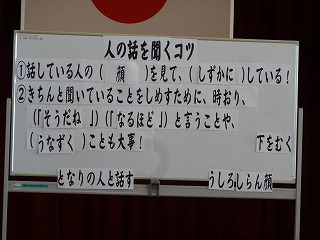 人の話を聞くコツ
①話している人の（ 顔 ）を見て、（しずかに）している！
②きちんと聞いていることをしめすために、時おり、
（「そうだね 」）（「なるほど 」）と言うことや、
（うなずく ）ことも大事！
下をむく
となりの人と話す
うしろ
しらん顔